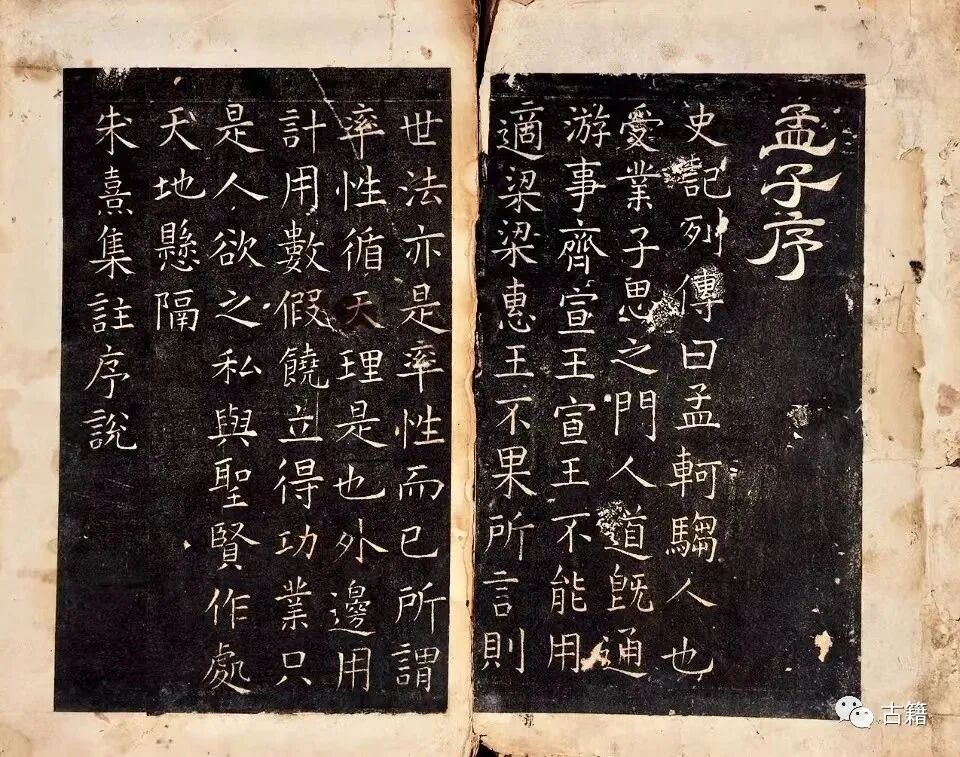 孟子序
史記列傳曰孟軻騶人也
受業子思之門人道旣通
游事齊宣王宣王不能用
適梁梁惠王不果所言則
世法亦是率性而已所謂
率性循天理是也外邊用
計用數假饒立得功業只
是人欲之私與聖賢作處
天地懸隔
朱熹集註序說
古籍